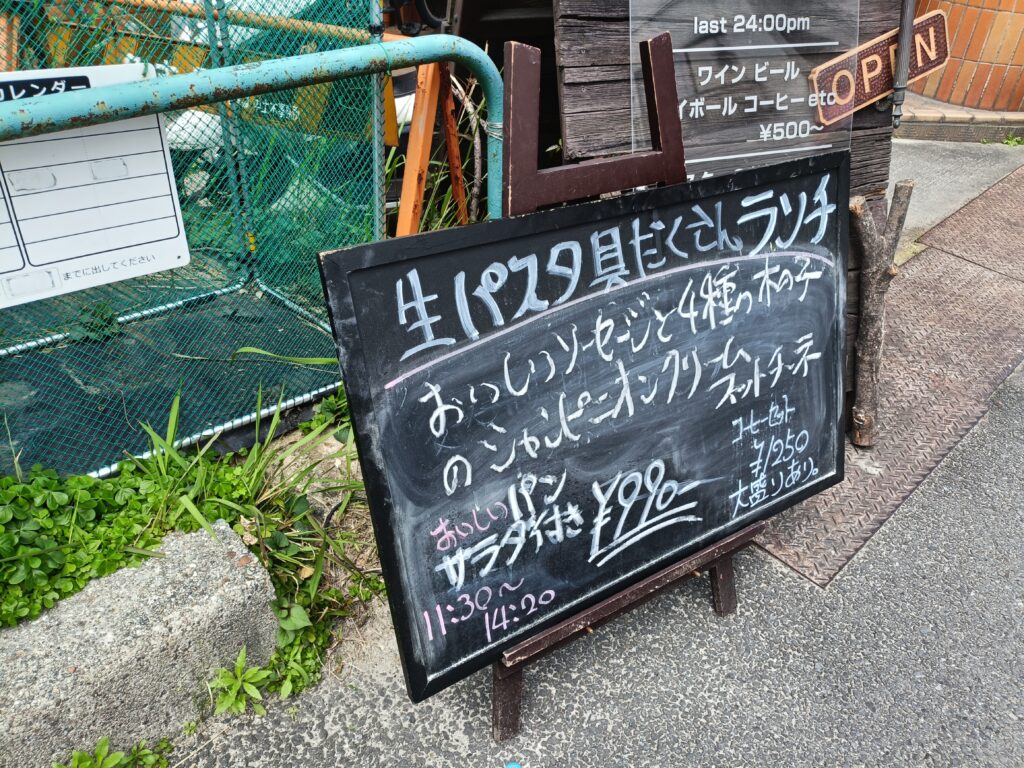 last 24:00pm
ワイン ビール
イボール コーヒー etc
¥500~
OPEN
レンダー
までに出してください
生パスタ具だくさんランチ
おいしいソーセージと4種の木の子
のシャンピニオンクリーム
フェットチーネ
おいしいパン
サラダ付き ¥990-
コーヒーセット
¥1250
大盛りあり。
11:30~
14:20